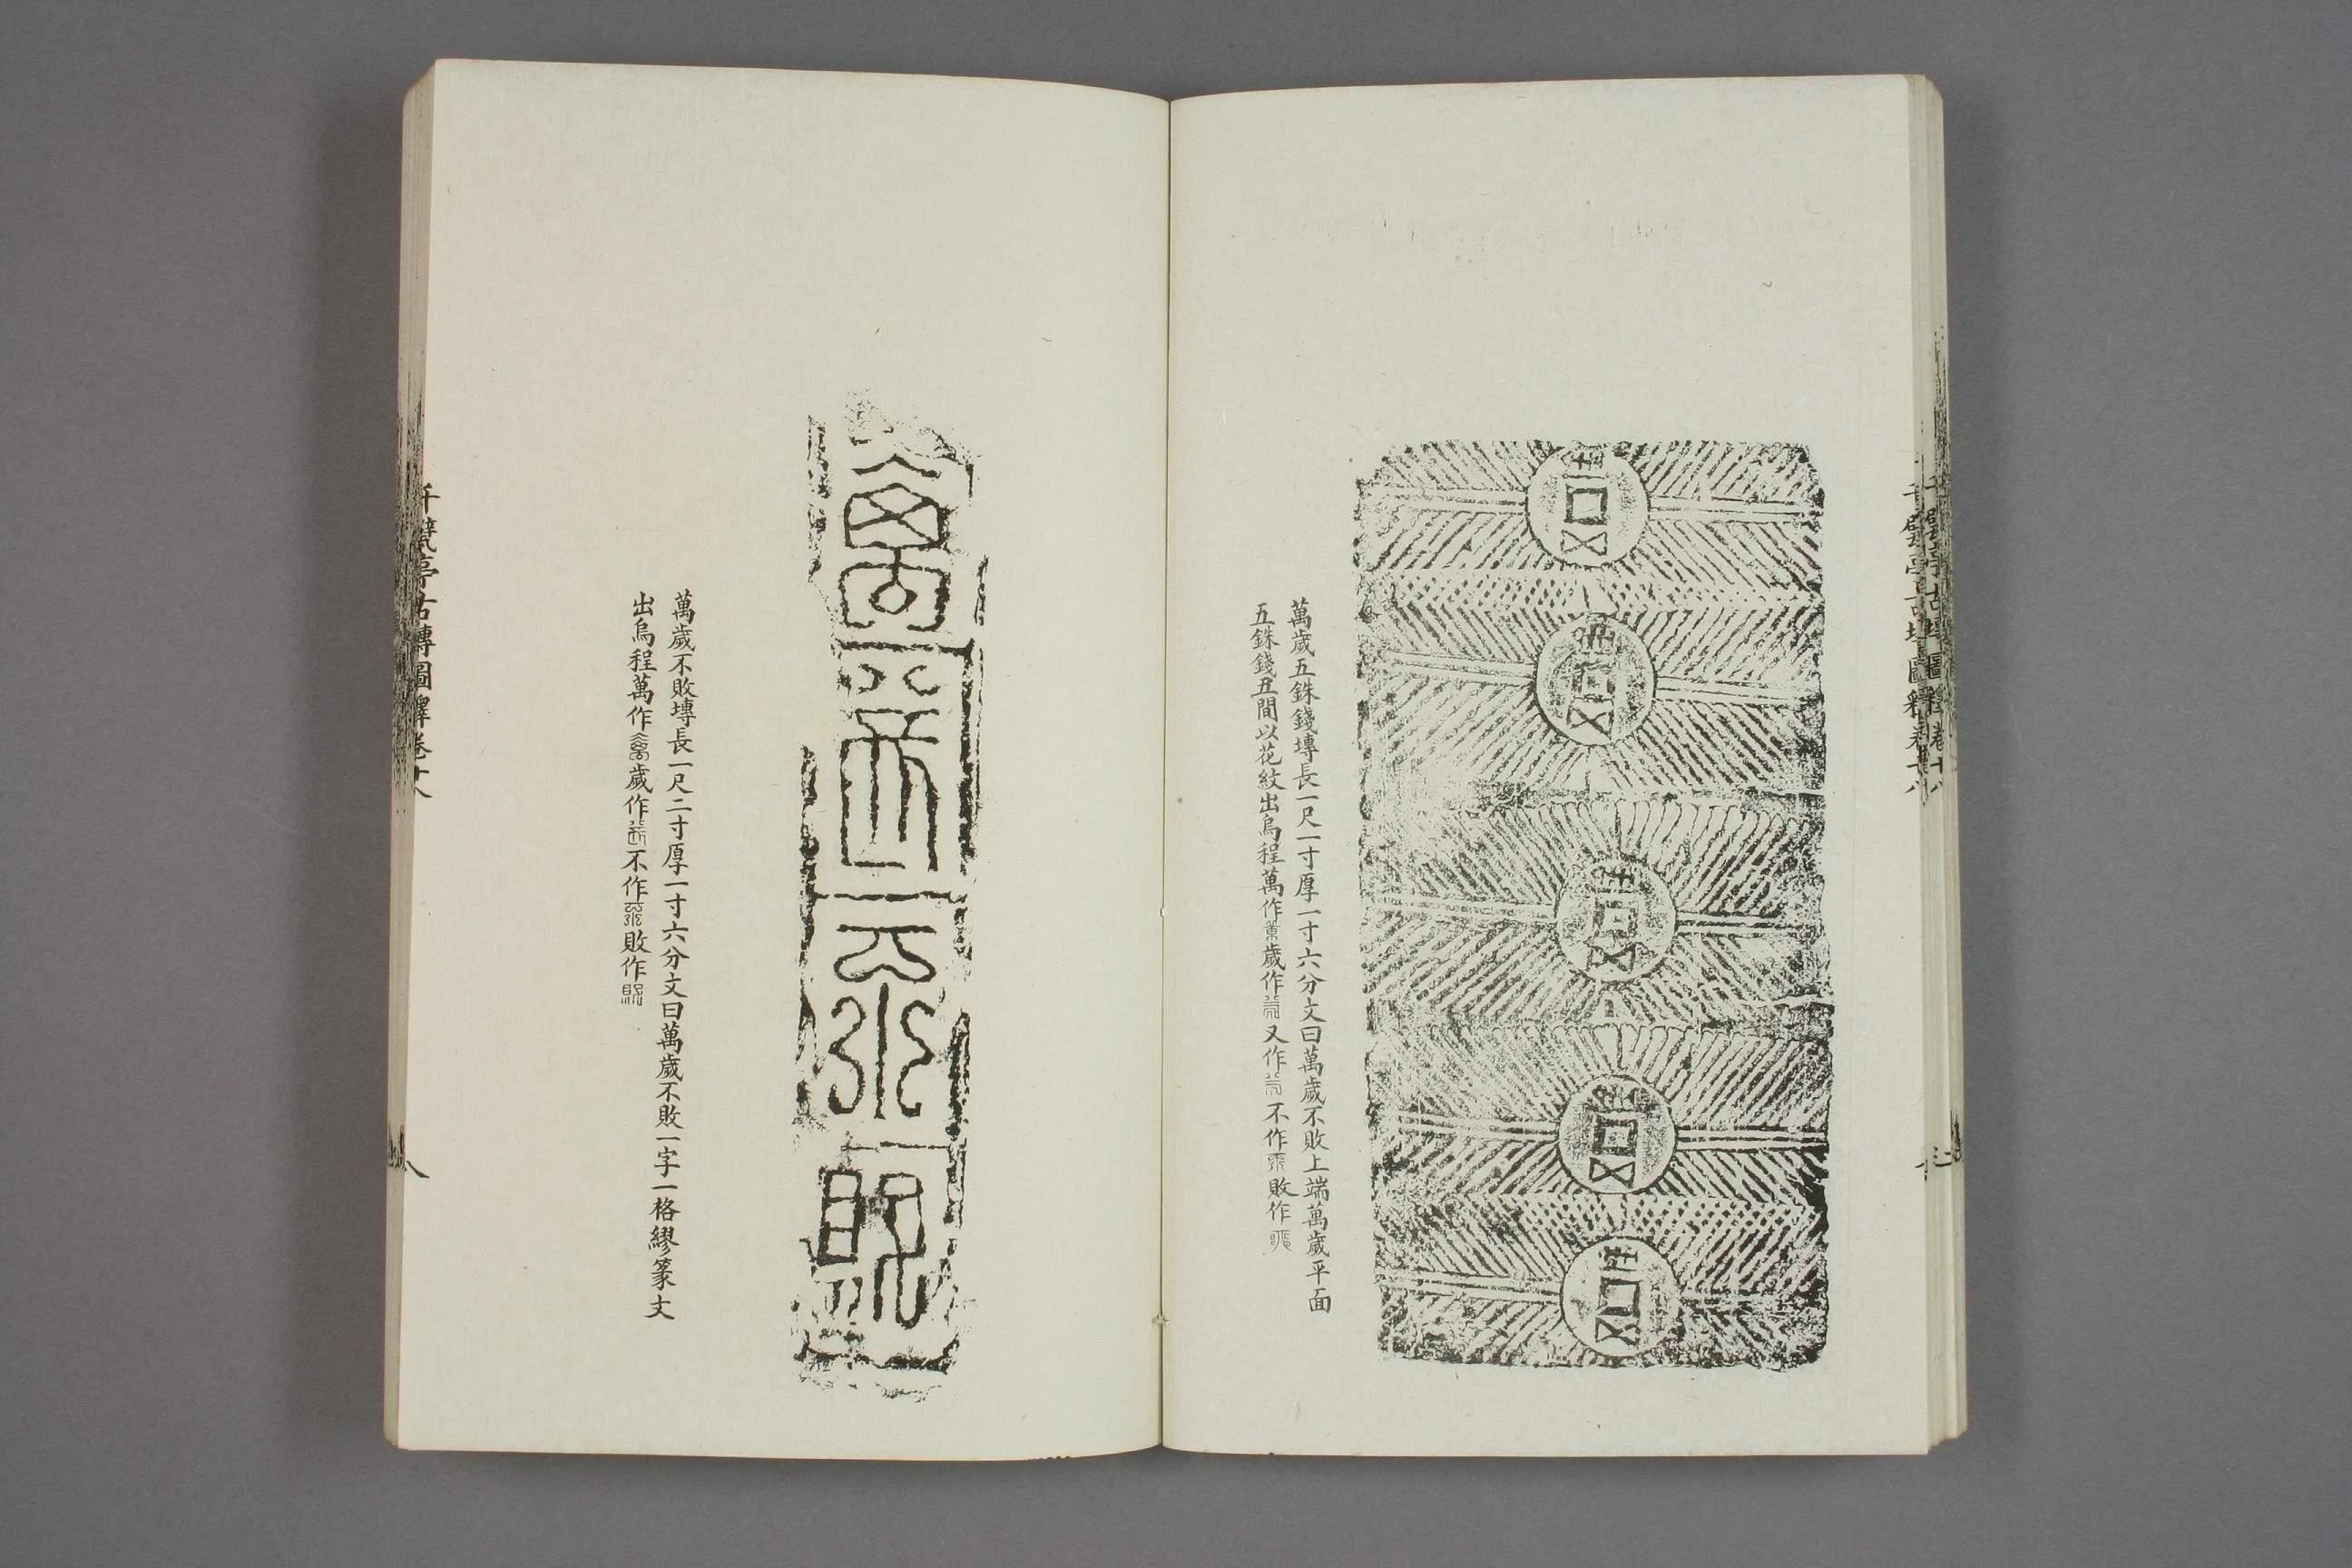 萬歲五銖錢塼長一尺一寸厚一寸六分文曰萬歲不敗上端萬歲平面
五銖錢五間以花紋出烏程萬作歲作又作不作敗作
萬歲不敗
萬歲不敗塼長一尺二寸厚一寸六分文曰萬歲不敗一字一格繆篆文
出烏程萬作歲作不作敗作
千甓亭古塼圖釋卷十八
八